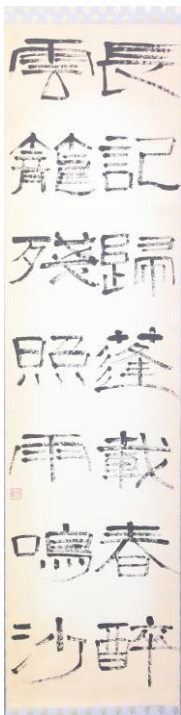 長記歸蓬載春醉
雲籠殘照雨鳴沙